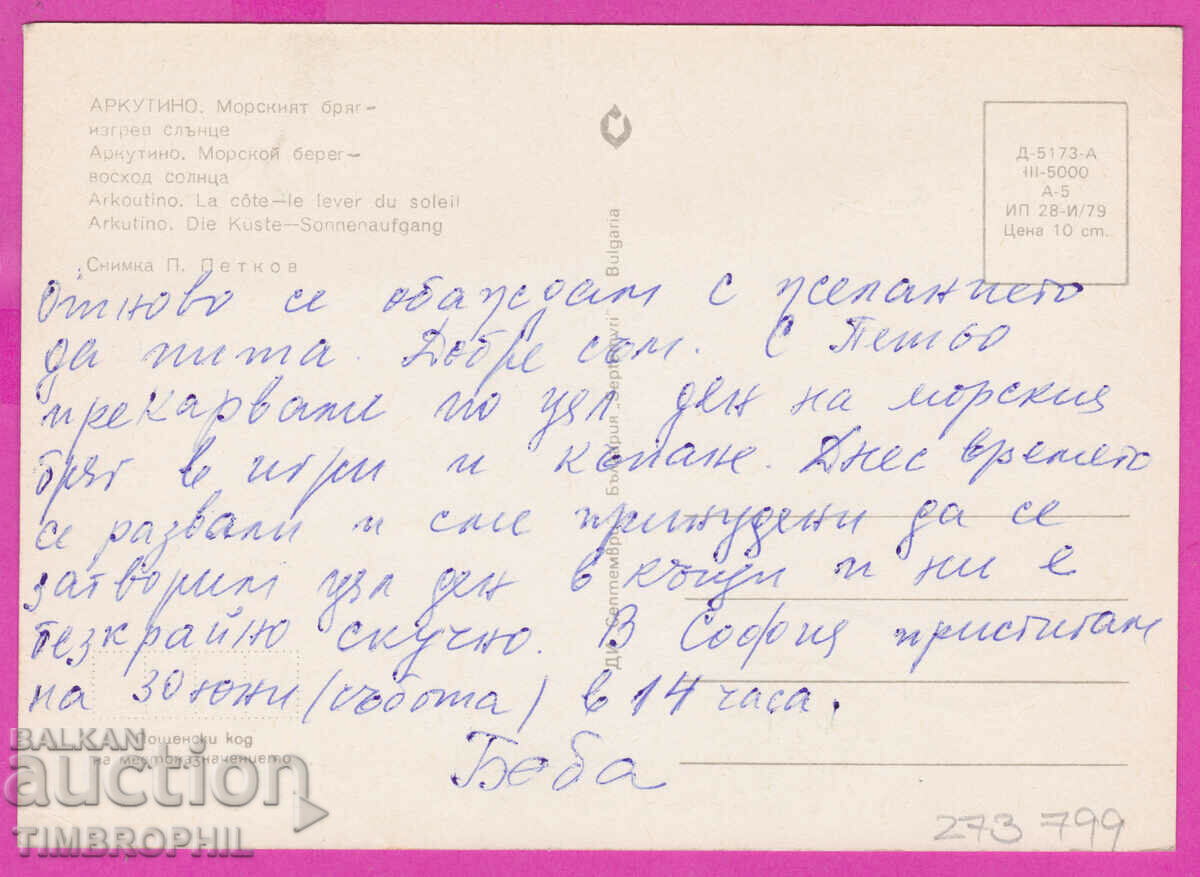 АРКУТИНО. Морският бряг—
изгрев слънце
Аркутино. Морской берег—
восход солнца
Arkoutino. La côte—le lever du soleil
Arkutino. Die Küste—Sonnenaufgang
Снимка П. Петков
Д-5173-А
III-5000
А-5
ИП 28-И/79
Цена 10 ст.
ДИ „Септември“ България „Septemvri“ Bulgaria
Отново се обаждам с желанието
да пиша. Добре съм. С Петьо
прекарваме по цял ден на морския
бряг в игри и къпане. Днес времето
се развали и сме принудени да се
затворим цял ден в къщи и ни е
безкрайно скучно. В София пристигам
на 30 юни (събота) в 14 часа.
Беба
Пощенски код
на местоназначението
BALKAN
auction
TIMBROPHIL
273 799